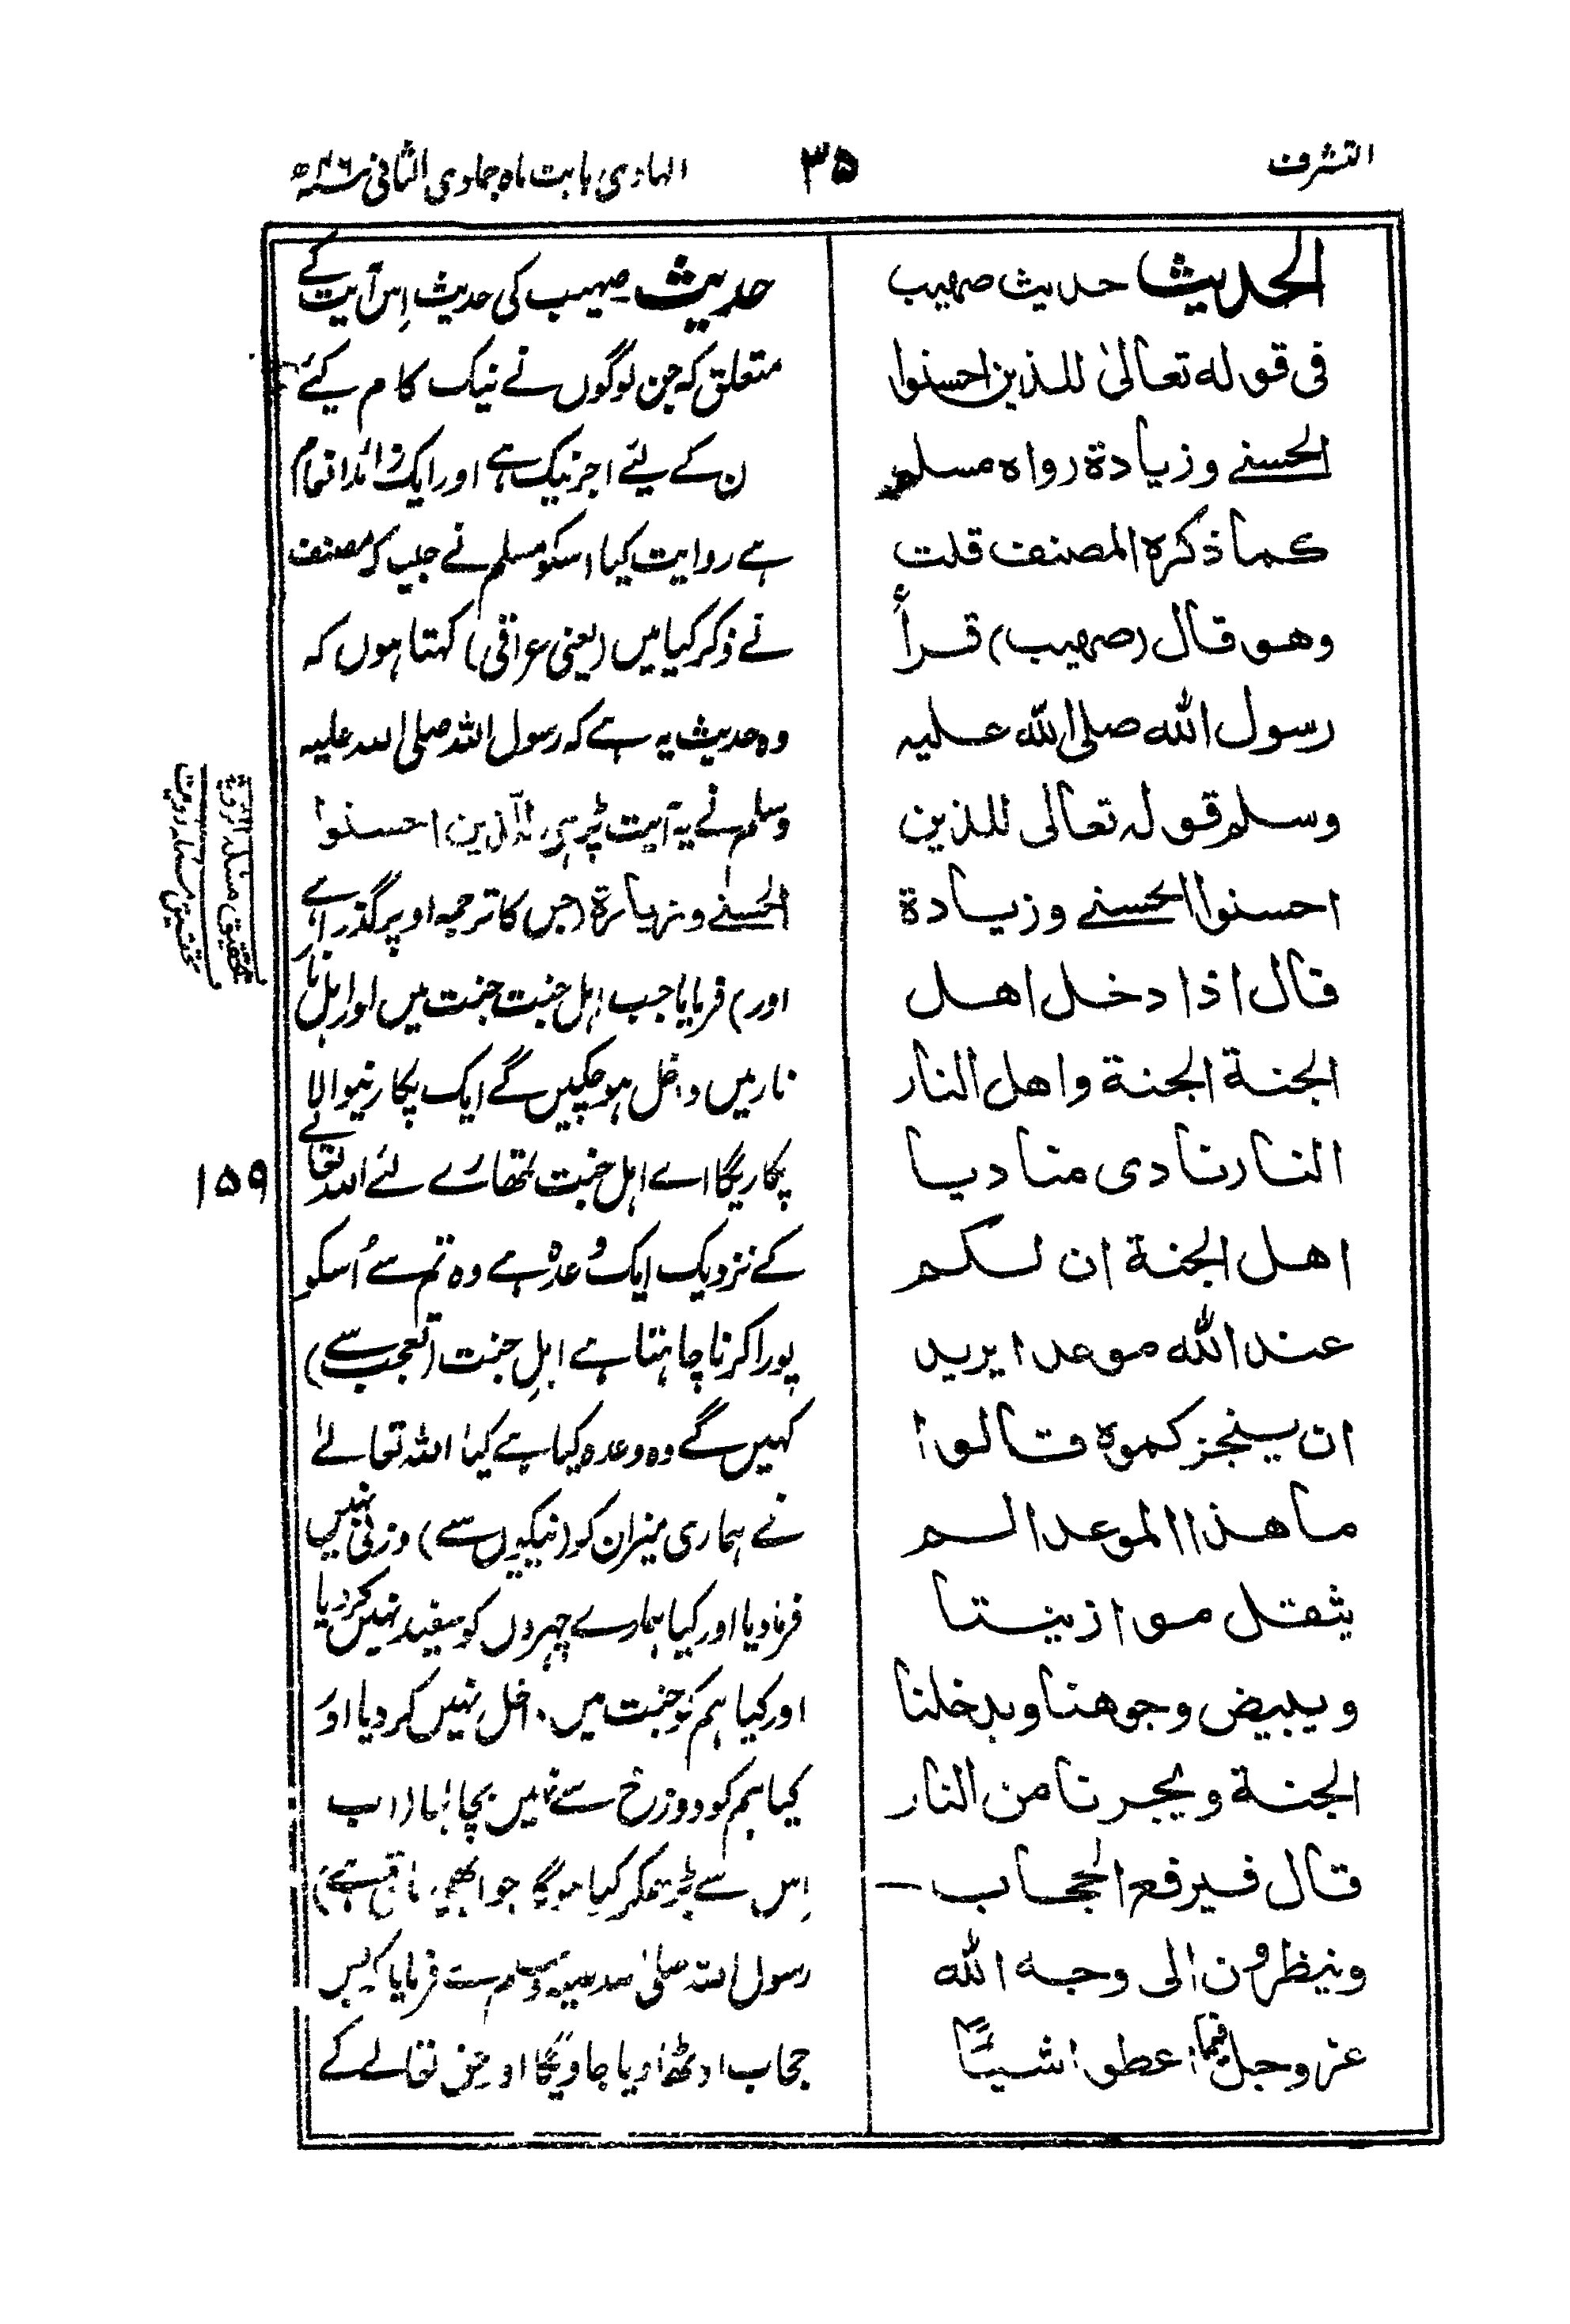 التشرف
۳۵
الہادی بابت ماہ جمادی الثانی ۴۶ھ
الحدیث حدیث صهیب
فی قوله تعالیٰ للذین احسنوا
الحسنے وزیادة رواه مسلم
کما ذکرہ المصنف قلت
وهو قال (صهیب) قرأ
رسول الله صلی الله علیہ
وسلم قولہ تعالی للذین
احسنوا الحسنے وزیادة
قال اذا دخل اهل
الجنة الجنة واهل النار
النار نادی منادیا
اهل الجنة ان لکم
عند الله موعدا یرید
ان ینجزکموہ قالوا
ما هذا الموعد الم
یثقل موازیننا
ویبیض وجوهنا ویدخلنا
الجنة ویجرنا من النار
قال فیرفع الحجاب —
وینظرون الی وجه الله
عز وجل فما اعطوا شیئًا
حدیث صہیب کی حدیث اِس آیت کے
متعلق کہ جن لوگوں نے نیک کام کیئے
ن کے لیئے اجر نیک ہے اور ایک زائد انعام
ہے روایت کیا اسکو مسلم نے جیسا کہ مصنف
نے ذکر کیا میں (یعنی عراقی) کہتا ہوں کہ
وہ حدیث یہ ہے کہ رسول اللہ صلی اللہ علیہ
وسلم نے یہ آیت پڑہی للّذین احسنوا
الحسنے وزیادة (جس کا ترجمہ اوپر گذرا ہے
اور) فرمایا جب اہل جنت جنت میں اور اہل نار
نار میں داخل ہو چکیں گے ایک پکارنیوالا
پکاریگا اے اہل جنت تمھارے لئے اللہ تعالے
کے نزدیک ایک وعدہ ہے وہ تم سے اُسکو
پورا کرنا چاہتا ہے اہلِ جنت (تعجب سے)
کہیں گے وہ وعدہ کیا ہے کیا اللہ تعالےٰ
نے ہماری میزان کو (نیکیوں سے) وزنی نہیں
فرمادیا اور کیا ہمارے چہروں کو سفید نہیں کردیا
اور کیا ہم کو جنت میں داخل نہیں کردیا اور
کیا ہم کو دوزخ سے نہیں بچا لیا (اب
اِس سے بڑھکر کیا ہوگا جو ابھی باقی ہے)
رسول اللہ صلی اللہ علیہ وسلم نے فرمایا کہ پس
حجاب اوٹھا دیا جاویگا اور حق تعالےٰ کے
تحقیق مسئلہ الرویة
تحقیق مسئلہ رویت
۱۵۹